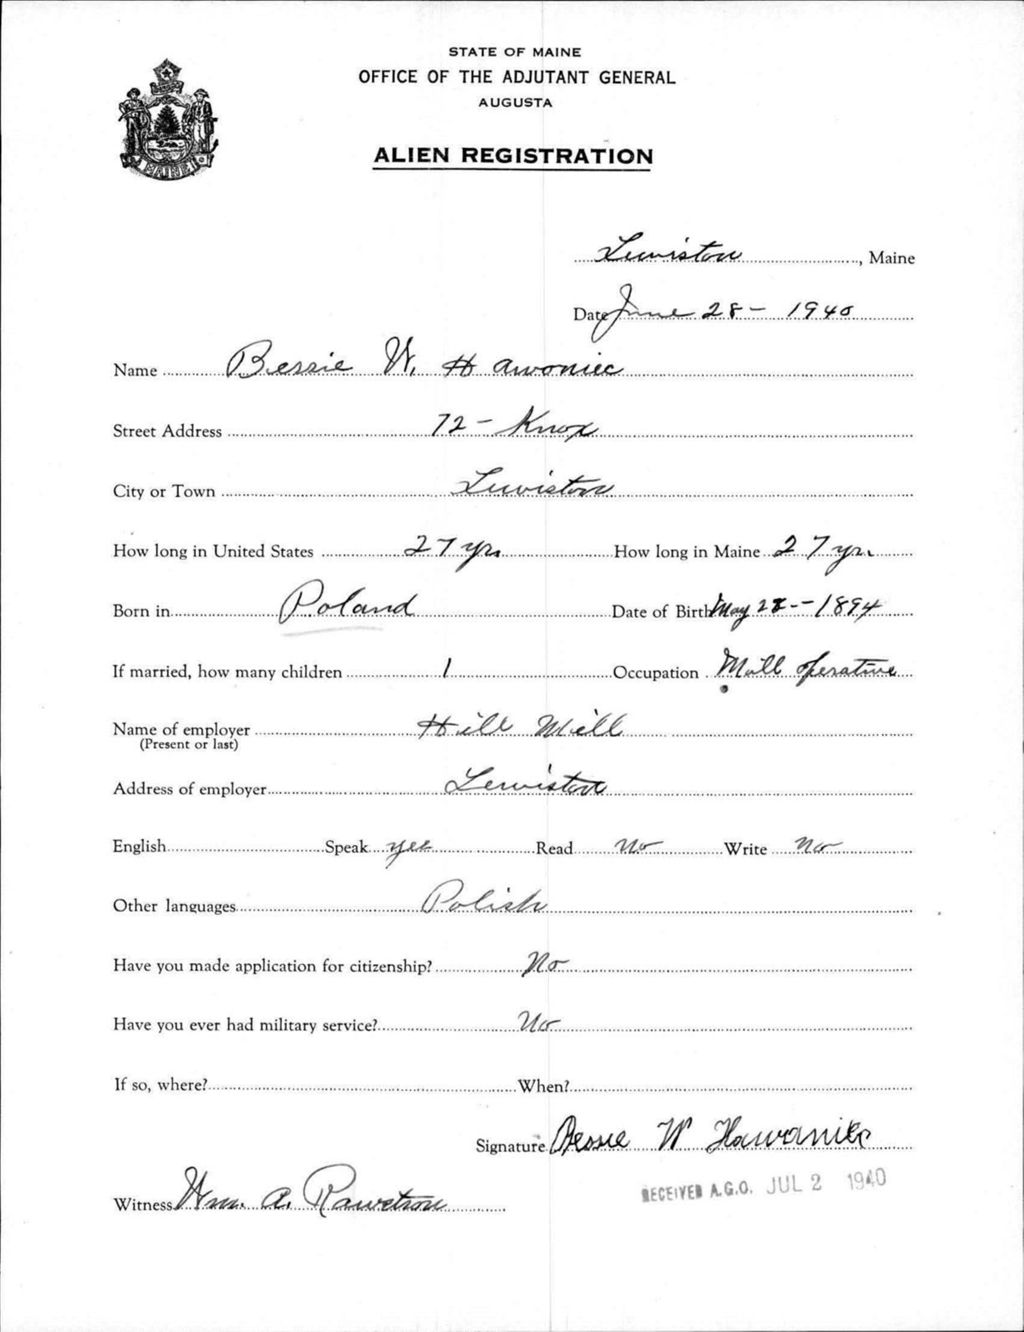 STATE OF MAINE
OFFICE OF THE ADJUTANT GENERAL
AUGUSTA
ALIEN REGISTRATION
MAINE
Lewiston, Maine
Date June 28 - 1940
Name Bessie W. Hawoniec
Street Address 72 - Knox
City or Town Lewiston
How long in United States 27 yrs How long in Maine 27 yrs.
Born in Poland Date of Birth May 28 - 1894
If married, how many children 1 Occupation Mill operative
Name of employer Hill Mill
(Present or last)
Address of employer Lewiston
English Speak yes Read No Write No
Other languages Polish
Have you made application for citizenship? No
Have you ever had military service? No
If so, where? When?
Signature Bessie W Hawaniec
Witness Wm. A. Rawstron
RECEIVED A.G.O. JUL 2 1940